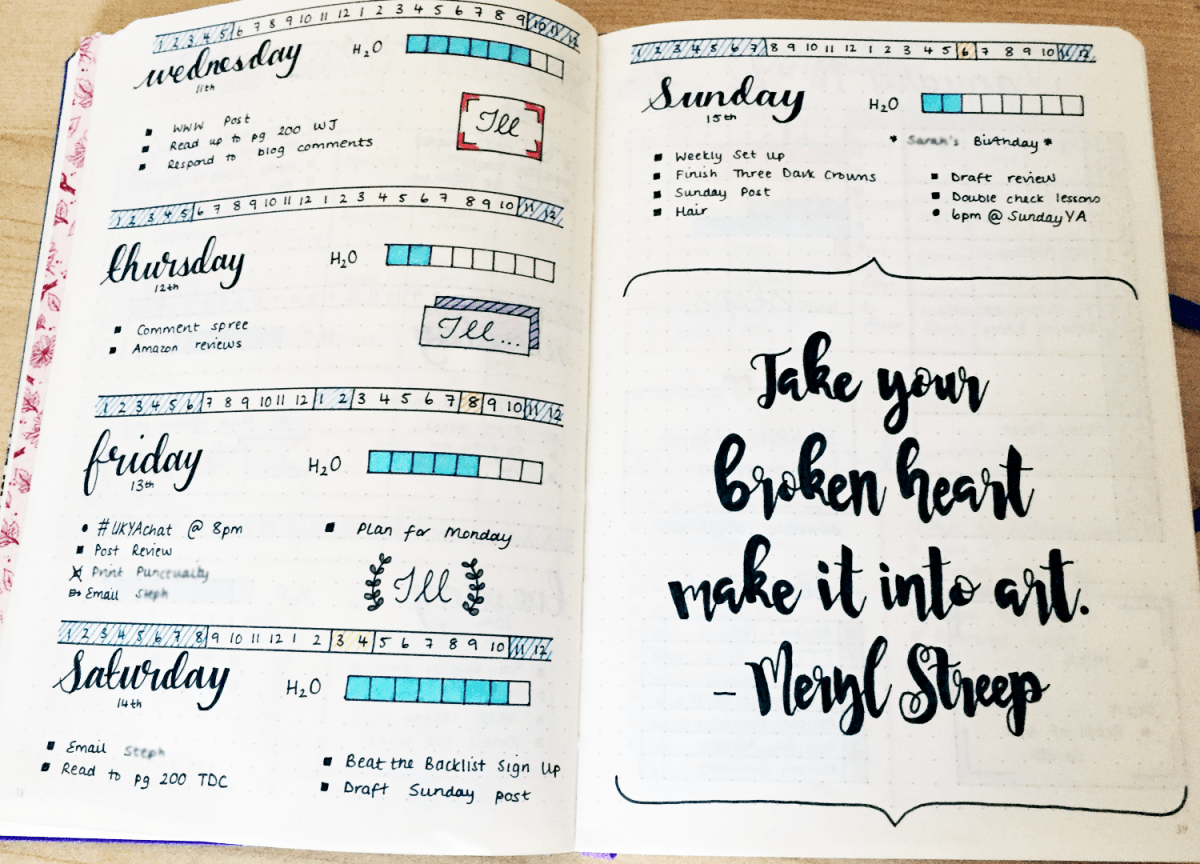 1 2 3 4 5 6 7 8 9 10 11 12 1 2 3 4 5 6 7 8 9 10 11 12
wednesday
11th
H2O
WWW Post
Read up to pg 200 WJ
Respond to blog comments
Ill
1 2 3 4 5 6 7 8 9 10 11 12 1 2 3 4 5 6 7 8 9 10 11 12
thursday
12th
H2O
Comment spree
Amazon reviews
Ill...
1 2 3 4 5 6 7 8 9 10 11 12 1 2 3 4 5 6 7 8 9 10 11 12
friday
13th
H2O
#UKYAchat @ 8pm
Post Review
Print Punctuality
Email Steph
Plan for Monday
Ill
1 2 3 4 5 6 7 8 9 10 11 12 1 2 3 4 5 6 7 8 9 10 11 12
Saturday
14th
H2O
Email Steph
Read to pg 200 TDC
Beat the Backlist Sign Up
Draft Sunday post
1 2 3 4 5 6 7 8 9 10 11 12 1 2 3 4 5 6 7 8 9 10 11 12
Sunday
15th
H2O
* Sarah's Birthday *
Weekly Set Up
Finish Three Dark Crowns
Sunday Post
Hair
Draft review
Double check lessons
6pm @ SundayYA
Take your
broken heart
make it into art.
- Meryl Streep
39